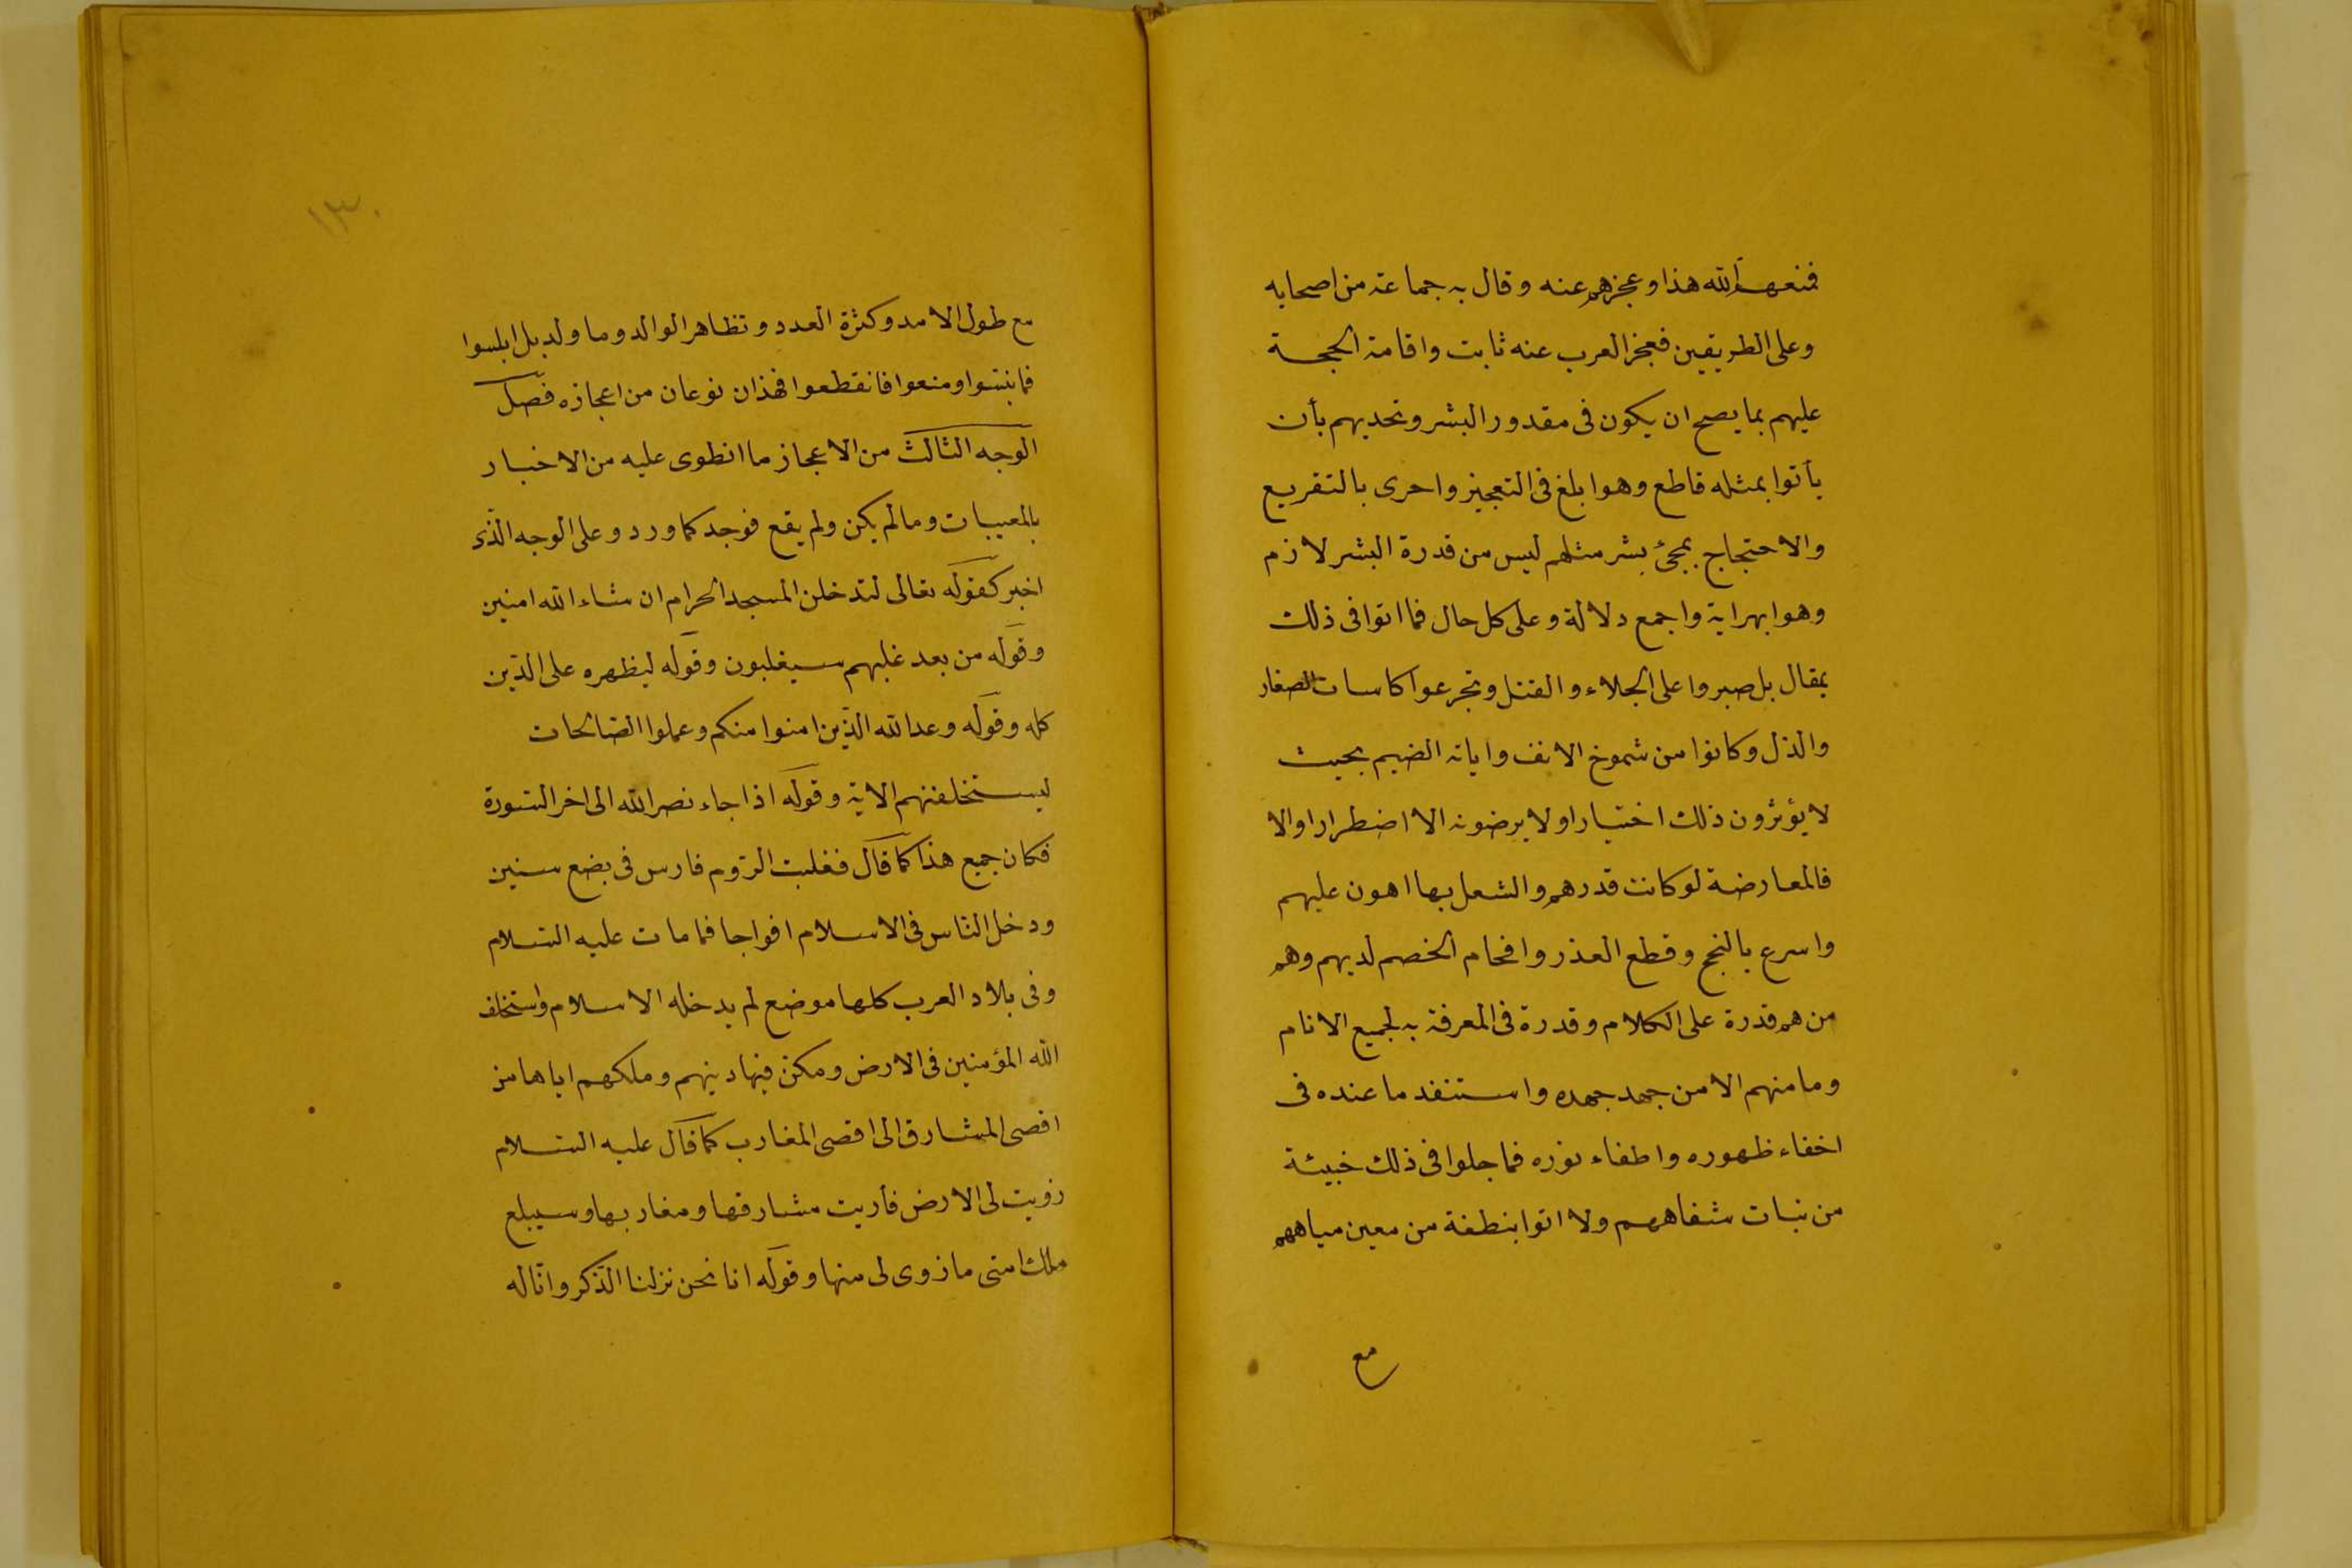 فمنعهم الله هذا وعجزهم عنه وقال به جماعة من اصحابه
وعلى الطريقين فعجز العرب عنه ثابت واقامة الحجة
عليهم بما يصح ان يكون فى مقدور البشر وتحديهم بأن
يأتوا بمثله قاطع وهو ابلغ فى التعجيز واحرى بالتقريع
والاحتجاج بمجئ بشر مثلهم ليس من قدرة البشر لازم
وهو ابهر اية واجمع دلالة وعلى كل حال فما اتوا فى ذلك
بمقال بل صبروا على الجلاء والقتل وتجرعوا كاسات الصغار
والذل وكانوا من شموخ الانف واباة الضيم بحيث
لا يؤثرون ذلك اختيارا ولا يرضونه الا اضطرارا والا
فالمعارضة لو كانت قدرهم والشعل بها اهون عليهم
واسرع بالنجح وقطع العذر وافحام الخصم لديهم وهم
من هم قدرة على الكلام وقدرة فى المعرفة به لجميع الانام
وما منهم الا من جهد جهده واستنفد ما عنده فى
اخفاء ظهوره واطفاء نوره فما جلوا فى ذلك خبيئة
من بنات شفاههم ولا اتوا بنطفة من معين مياههم
مع
١٣٠
مع طول الامد وكثرة العدد وتظاهر الوالد وما ولد بل ابلسوا
فما نبتسوا ومنعوا فانقطعوا فهذان نوعان من اعجازه فصل
الوجه الثالث من الاعجاز ما انطوى عليه من الاخبار
بالمعيبات وما لم يكن ولم يقع فوجد كما ورد وعلى الوجه الّذى
اخبر كقوله تعالى لتدخلن المسجد الحرام ان شاء الله امنين
وقوله من بعد غلبهم سيغلبون وقوله ليظهره على الدّين
كله وقوله وعد الله الّذين امنوا منكم وعملوا الصّالحات
ليستخلفنهم الاية وقوله اذا جاء نصر الله الى اخر السّورة
فكان جميع هذا كما قال فغلبت الرّوم فارس فى بضع سنين
ودخل النّاس فى الاسلام افواجا فما مات عليه السّلام
وفى بلاد العرب كلها موضع لم يدخله الاسلام واستخلف
الله المؤمنين فى الارض ومكن فيها دينهم وملكهم اياها من
اقصى المشارق الى اقصى المغارب كما قال عليه السّلام
زويت لى الارض فأريت مشارقها ومغاربها وسيبلع
ملك امتى ما زوى لى منها وقوله انا نحن نزلنا الذّكر وانّا له